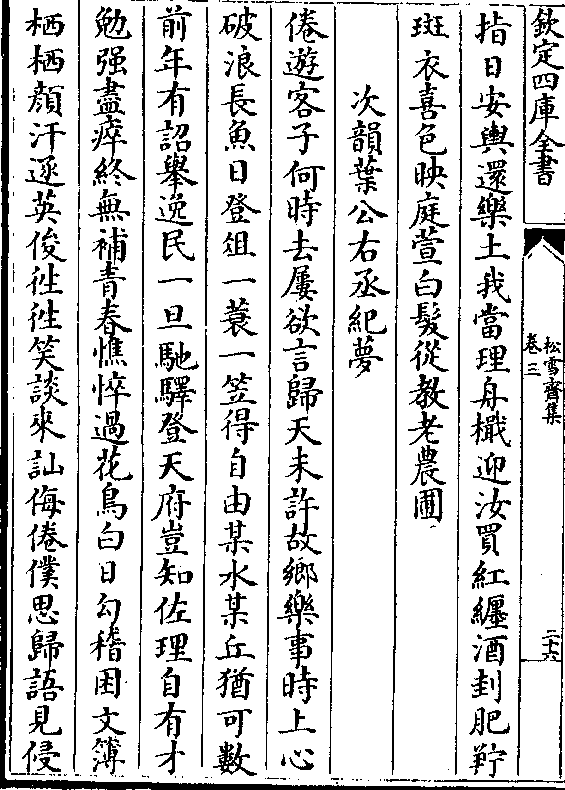 欽定四庫全書
松雪齋集
卷三
二十六
指日安輿還樂土我當理舟檝迎汝買紅纒酒刲肥羜
斑衣喜色映庭萱白髮從教老農圃
次韻葉公右丞紀夢
倦遊客子何時去屢欲言歸天未許故鄉樂事時上心
破浪長魚日登俎一蓑一笠得自由某水某丘猶可數
前年有詔舉逸民一旦馳驛登天府豈知佐理自有才
勉强盡瘁終無補青春憔悴過花鳥白日勾稽困文簿
栖栖顔汗逐英俊徃徃笑談來訕侮倦僕思歸語見侵